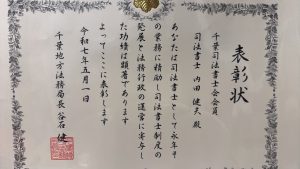 表彰状
千葉司法書士会会員
司法書士 内田 健夫 殿
あなたは司法書士として永年そ
の業務に精励し司法書士制度の
発展と法務行政の運営に寄与し
た功績は顕著であります
よってここに表彰します
令和七年五月一日
千葉地方法務局長 谷石 健